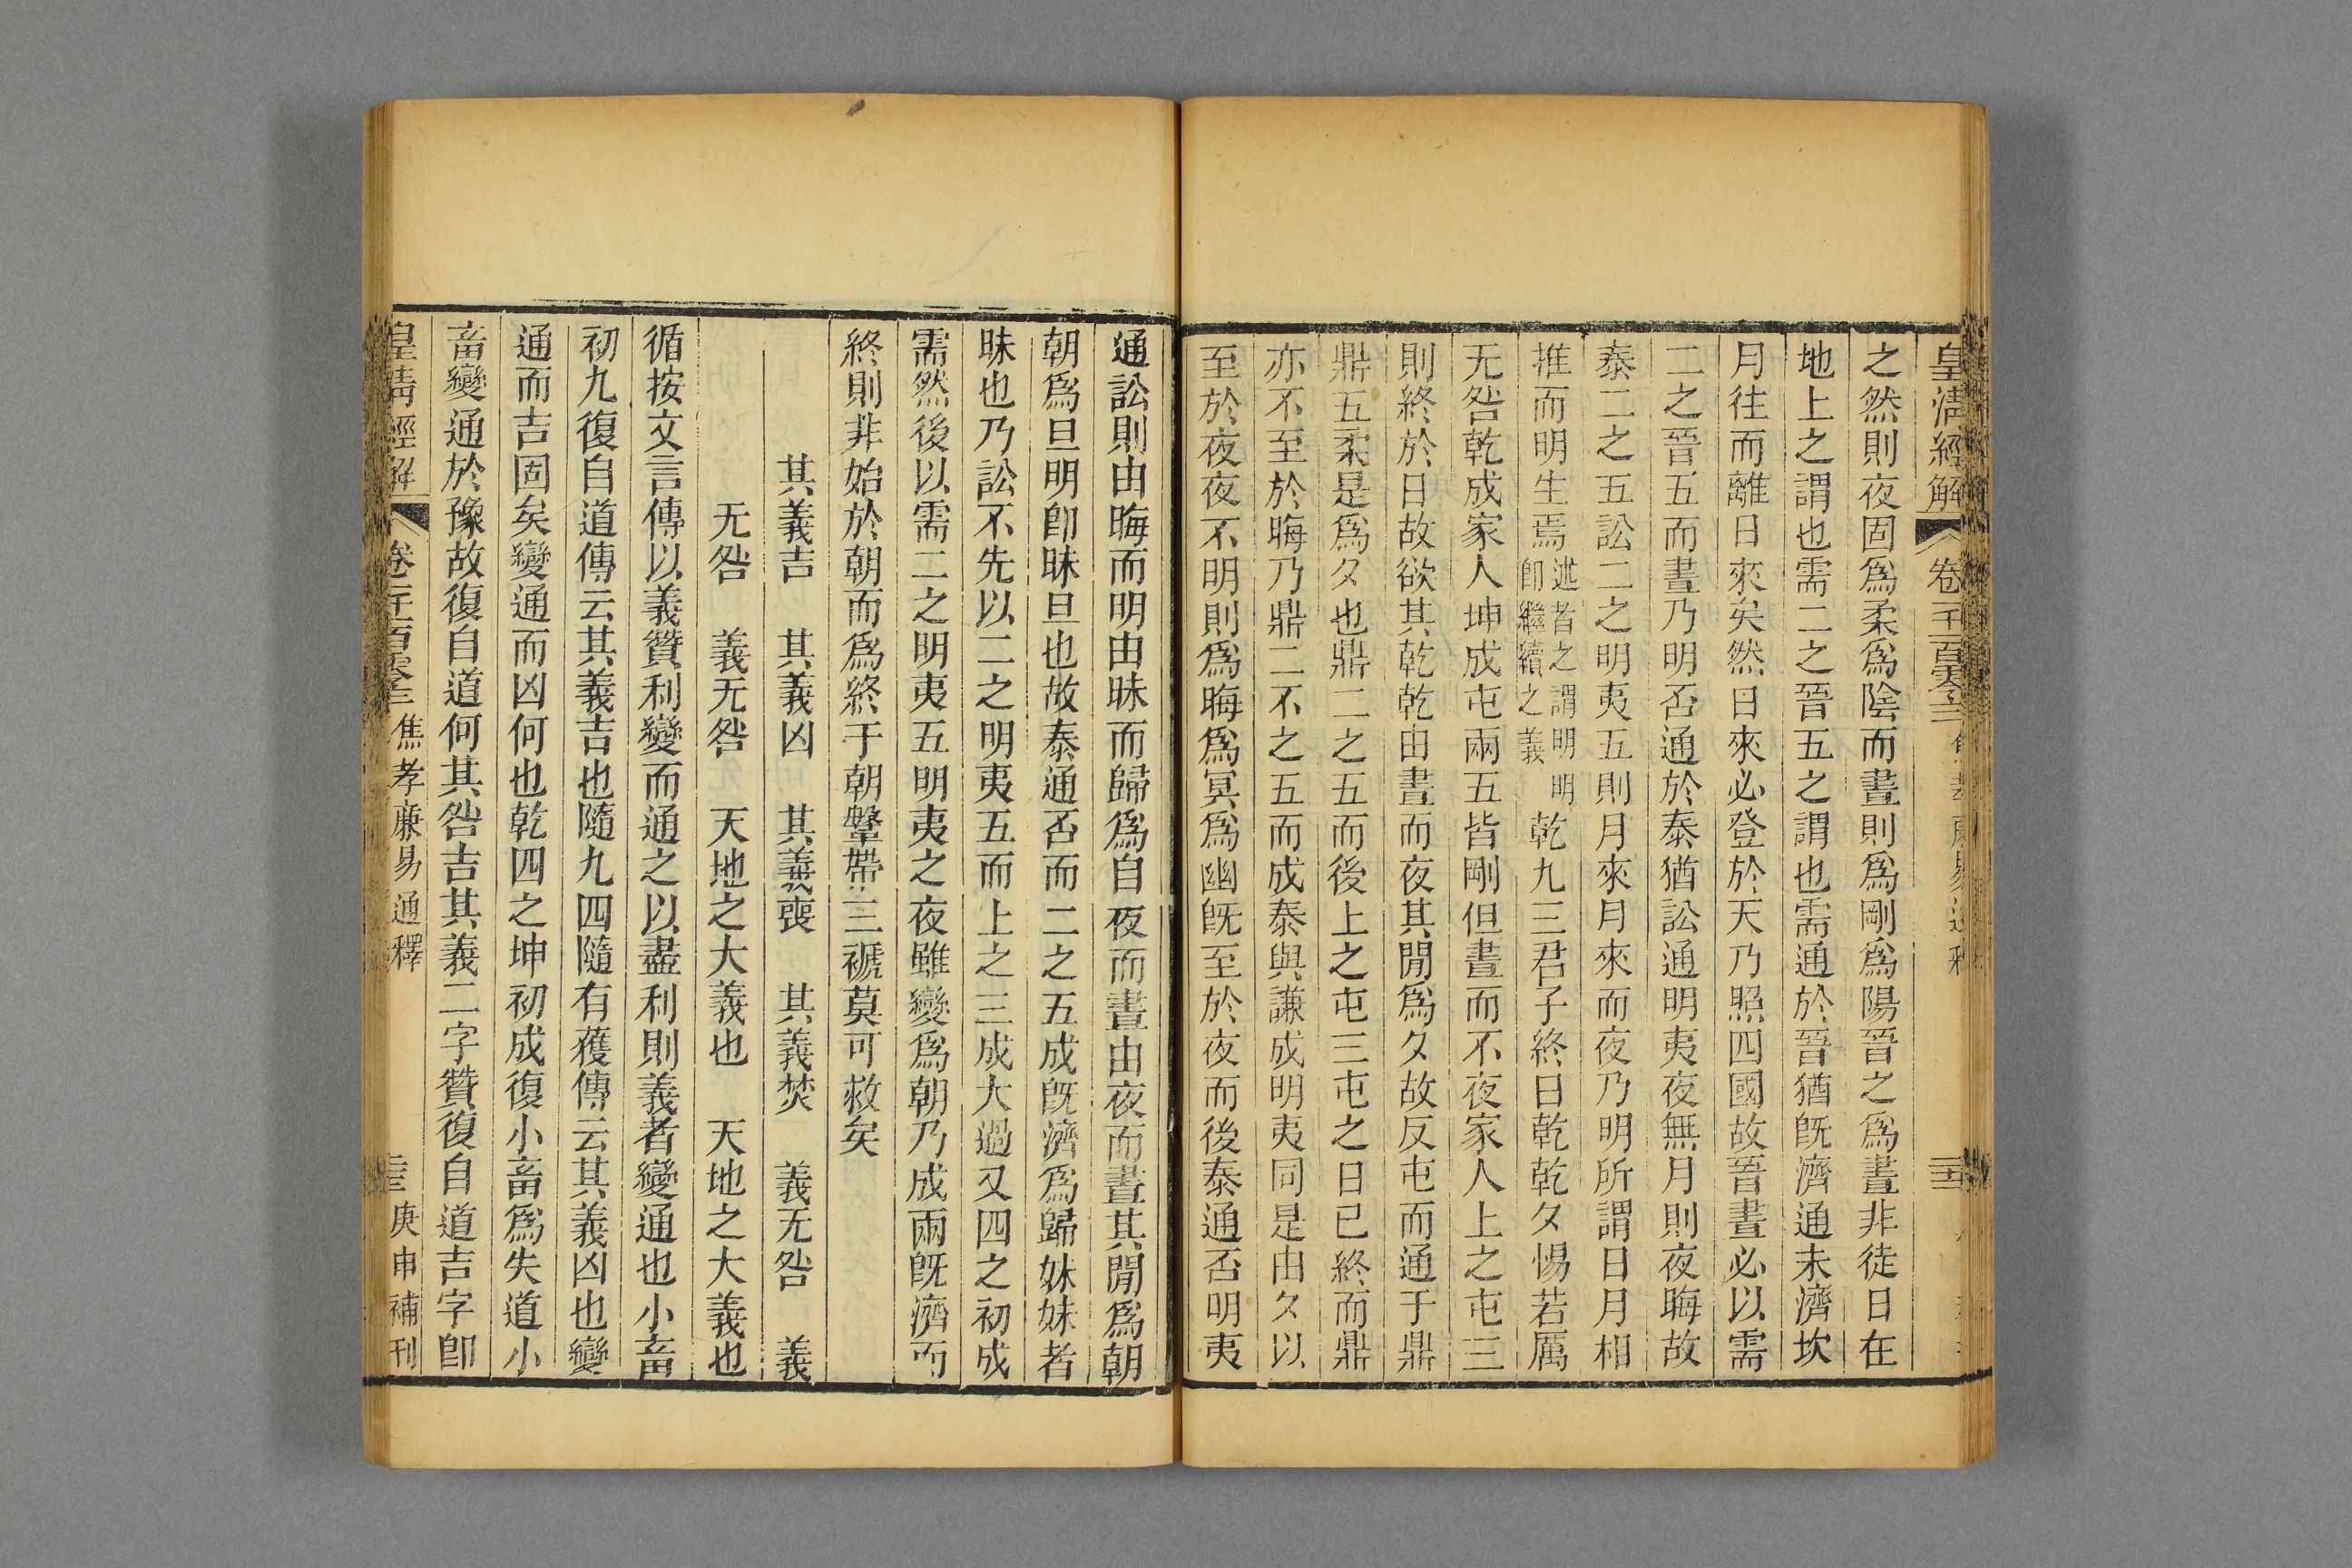 皇清經解 卷一千一百零三
之然則夜固爲柔爲陰而晝則爲剛爲陽晉之爲晝非徒日在
地上之謂也需二之晉五之謂也需通於晉猶旣濟通未濟坎
月往而離日來矣然日來必登於天乃照四國故晉晝必以需
二之晉五而晝乃明否通於泰猶訟通明夷夜無月則夜晦故
泰二之五訟二之明夷五則月來月來而夜乃明所謂日月相
推而明生焉述者之謂明明卽繼續之義乾九三君子終日乾乾夕惕若厲
无咎乾成家人坤成屯兩五皆剛但晝而不夜家人上之屯三
則終於日故欲其乾乾由晝而夜其閒爲夕故反屯而通于鼎
鼎五柔是爲夕也鼎二之五而後上之屯三屯之日已終而鼎
亦不至於晦乃鼎二不之五而成泰與謙成明夷同是由夕以
至於夜夜不明則爲晦爲冥爲幽旣至於夜而後泰通否明夷
通訟則由晦而明由昧而歸爲自夜而晝由夜而晝其閒爲朝
朝爲旦明卽昧旦也故泰通否而二之五成旣濟爲歸妹妹者
昧也乃訟不先以二之明夷五而上之三成大過又四之初成
需然後以需二之明夷五明夷之夜雖變爲朝乃成兩旣濟而
終則非始於朝而爲終于朝鞶帶三褫莫可救矣
其義吉 其義凶 其義喪 其義焚 義无咎 義
无咎 義无咎 天地之大義也 天地之大義也
循按文言傳以義贊利變而通之以盡利則義者變通也小畜
初九復自道傳云其義吉也隨九四隨有獲傳云其義凶也變
通而吉固矣變通而凶何也乾四之坤初成復小畜爲失道小
畜變通於豫故復自道何其咎吉其義二字贊復自道吉字卽
皇清經解 卷一千一百零三 焦孝廉易通釋 庚申補刊